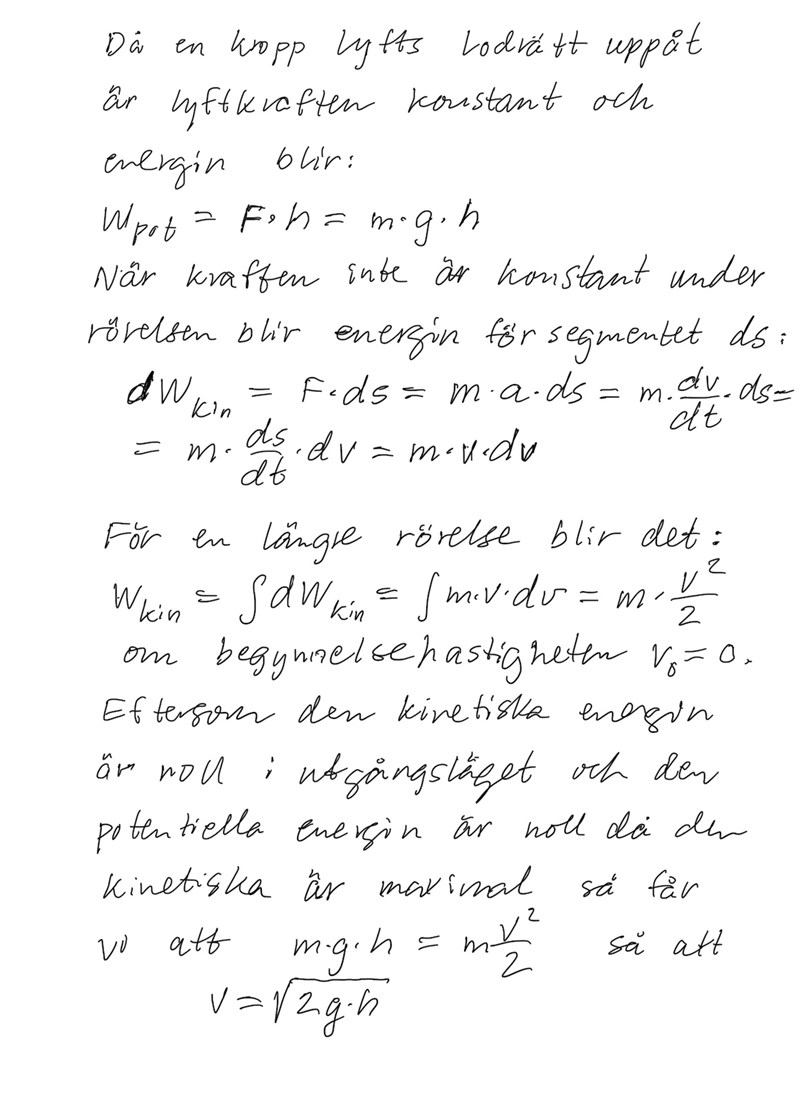 Då en kropp lyfts lodrätt uppåt
är lyftkraften konstant och
energin blir:
W_pot = F·h = m·g·h
När kraften inte är konstant under
rörelsen blir energin för segmentet ds:
dW_kin = F·ds = m·a·ds = m·dv/dt·ds=
= m·ds/dt·dv = m·v·dv
För en längre rörelse blir det:
W_kin = ∫dW_kin = ∫m·v·dv = m·v²/2
om begynnelsehastigheten v₀=0.
Eftersom den kinetiska energin
är noll i utgångsläget och den
potentiella energin är noll då den
kinetiska är maximal så får
vi att m·g·h = m v²/2 så att
v=√2g·h